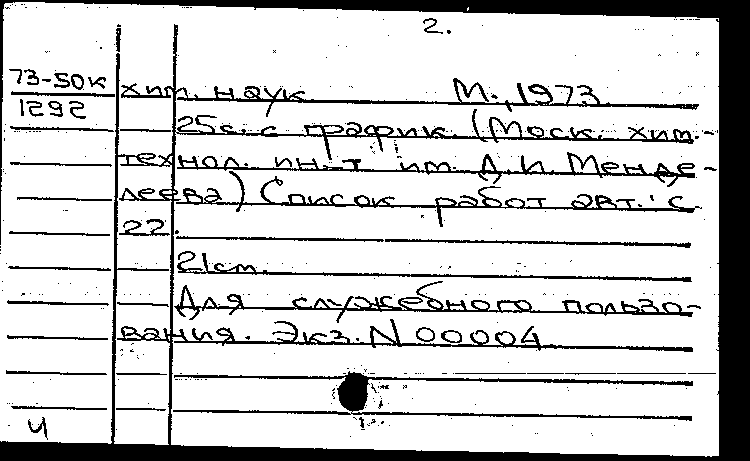 2.
73-50к хим. наук М., 1973.
1292
25с. с график. (Моск. хим.-
технол. ин-т им. Д.И. Менде-
леева) Список работ авт.: с.
22.
21см.
Для служебного пользо-
вания. Экз. N 00004
Ч